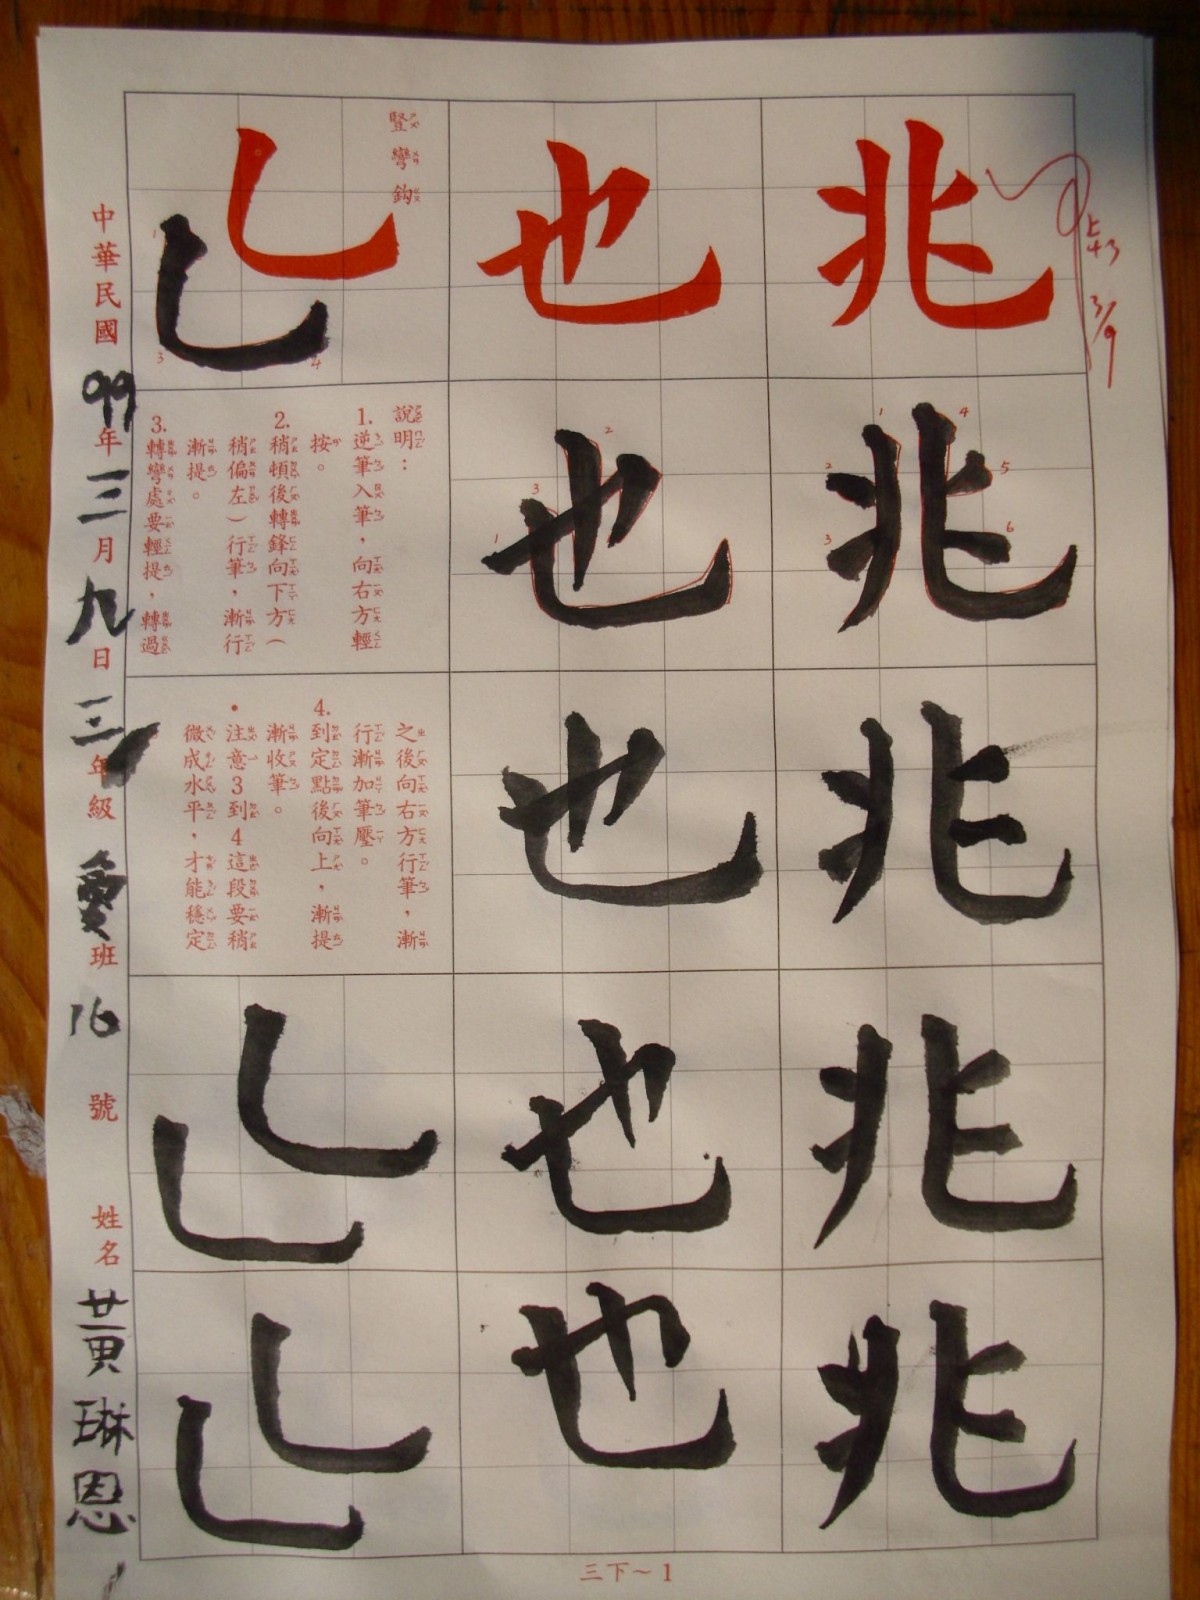 兆
兆
兆
兆
兆
3/9
也
也
也
也
也
豎彎鈎
說明：
1.逆筆入筆，向右方輕
按。
2.稍頓後轉鋒向下方（
稍偏左）行筆，漸行
漸提。
3.轉彎處要輕提，轉過
之後向右方行筆，漸
行漸加筆壓。
4.到定點後向上，漸提
漸收筆。
•注意3到4這段要稍
微成水平，才能穩定
中華民國99年三月九日三年級 班16號 姓名黃琳恩
三下～1